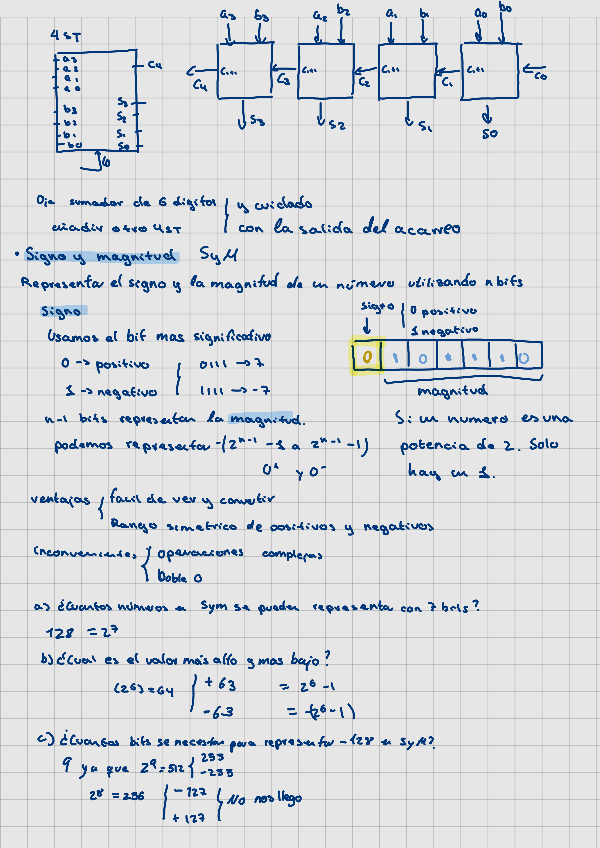 4 ST
a3
a2
a1
a0
b3
b2
b1
b0
C4
S3
S2
S1
S0
a3 b3 a2 b2 a1 b1 a0 b0
C4 C3 C2 C1 C0
S3 S2 S1 S0
sumador de 6 digitos y cuidado
añadir otro 4ST con la salida del acarreo
• Signo y magnitud SyM
Representar el signo y la magnitud de un número utilizando n bits
Signo
signo 0 positivo
1 negativo
Usamos el bit mas significativo
0 -> positivo 0111 -> 7
1 -> negativo 1111 -> -7
0 1 0 1 1 1 0
magnitud
n-1 bits representan la magnitud.
podemos representar -(2ⁿ⁻¹ -1 a 2ⁿ⁻¹ -1)
0⁺ y 0⁻
Si un numero es una
potencia de 2. Solo
hay un 1.
ventajas { facil de ver y convertir
Rango simetrico de positivos y negativos
Inconvenientes { operaciones complejas
Doble 0
a) ¿Cuantos números en Sym se pueden representa con 7 bits?
128 = 2⁷
b) ¿Cual es el valor más alto y mas bajo?
(2⁶) = 64 { + 63 = 2⁶ -1
-63 = -(2⁶ -1)
c) ¿Cuantos bits se necesitan para representar -128 en SyM?
9 ya que 2⁹ = 512 { 255
-255
2⁸ = 256 { -127
+127 } No nos llego